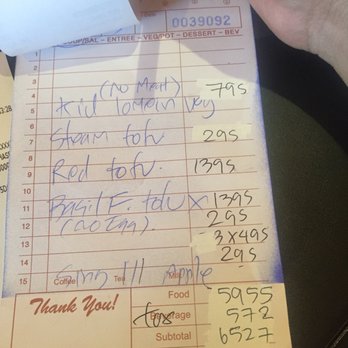 0039092
SOUP/SAL – ENTREE – VEG/POT – DESSERT – BEV
1
2
3
(No Meat)
4 Kid lomein Veg 795
5
6
7 Steam tofu 295
8
9 Red tofu. 1395
10
11 Basil F. tofu X 1395
12 (no Egg). 295
13 3x495
14 295
15 Apple
Coffee Tea Milk
Thank You!
Food 5955
tax Beverage 572
Subtotal 6527